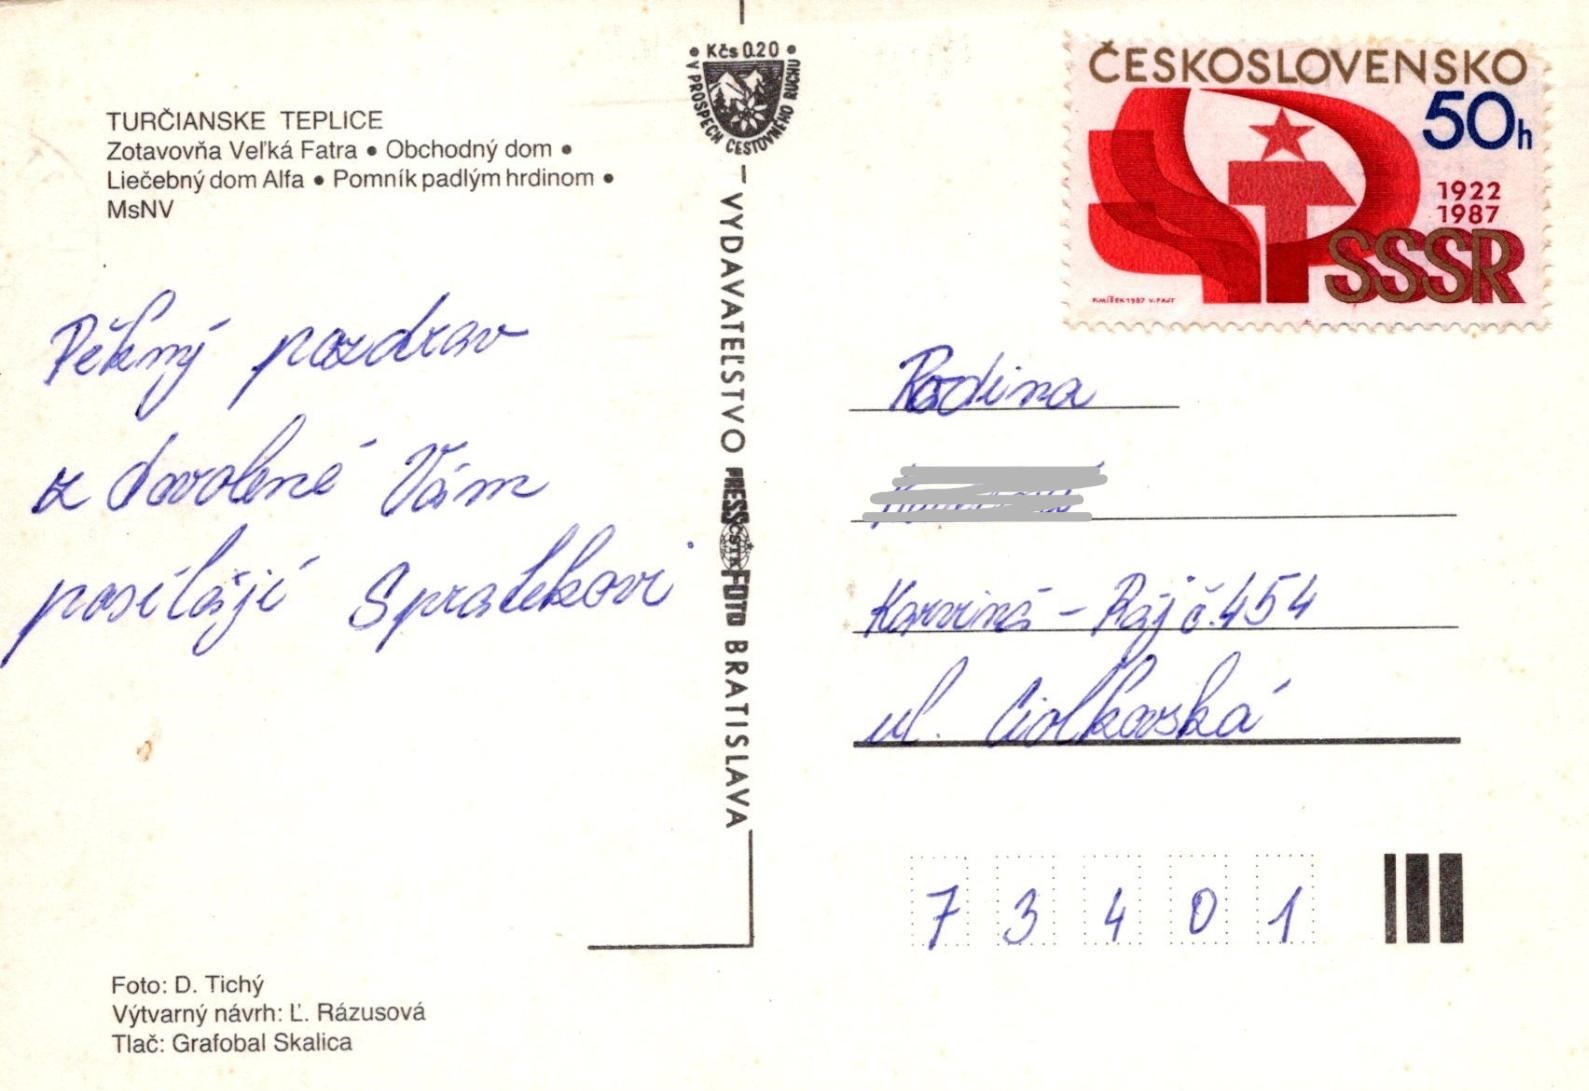 TURČIANSKE TEPLICE
Zotavovňa Veľká Fatra • Obchodný dom •
Liečebný dom Alfa • Pomník padlým hrdinom •
MsNV
Pěkný pozdrav
z dovolené Vám
posílají Spratekovi
Foto: D. Tichý
Výtvarný návrh: Ľ. Rázusová
Tlač: Grafobal Skalica
• Kčs 0.20 •
V PROSPECH CESTOVNÉHO RUCHU
– VYDAVATEĽSTVO PRESSFOTO BRATISLAVA
ČSTK
ČESKOSLOVENSKO
50h
1922
1987
SSSR
Rodina
Karviná – Ráj č. 454
ul. Ciolkovská
73401